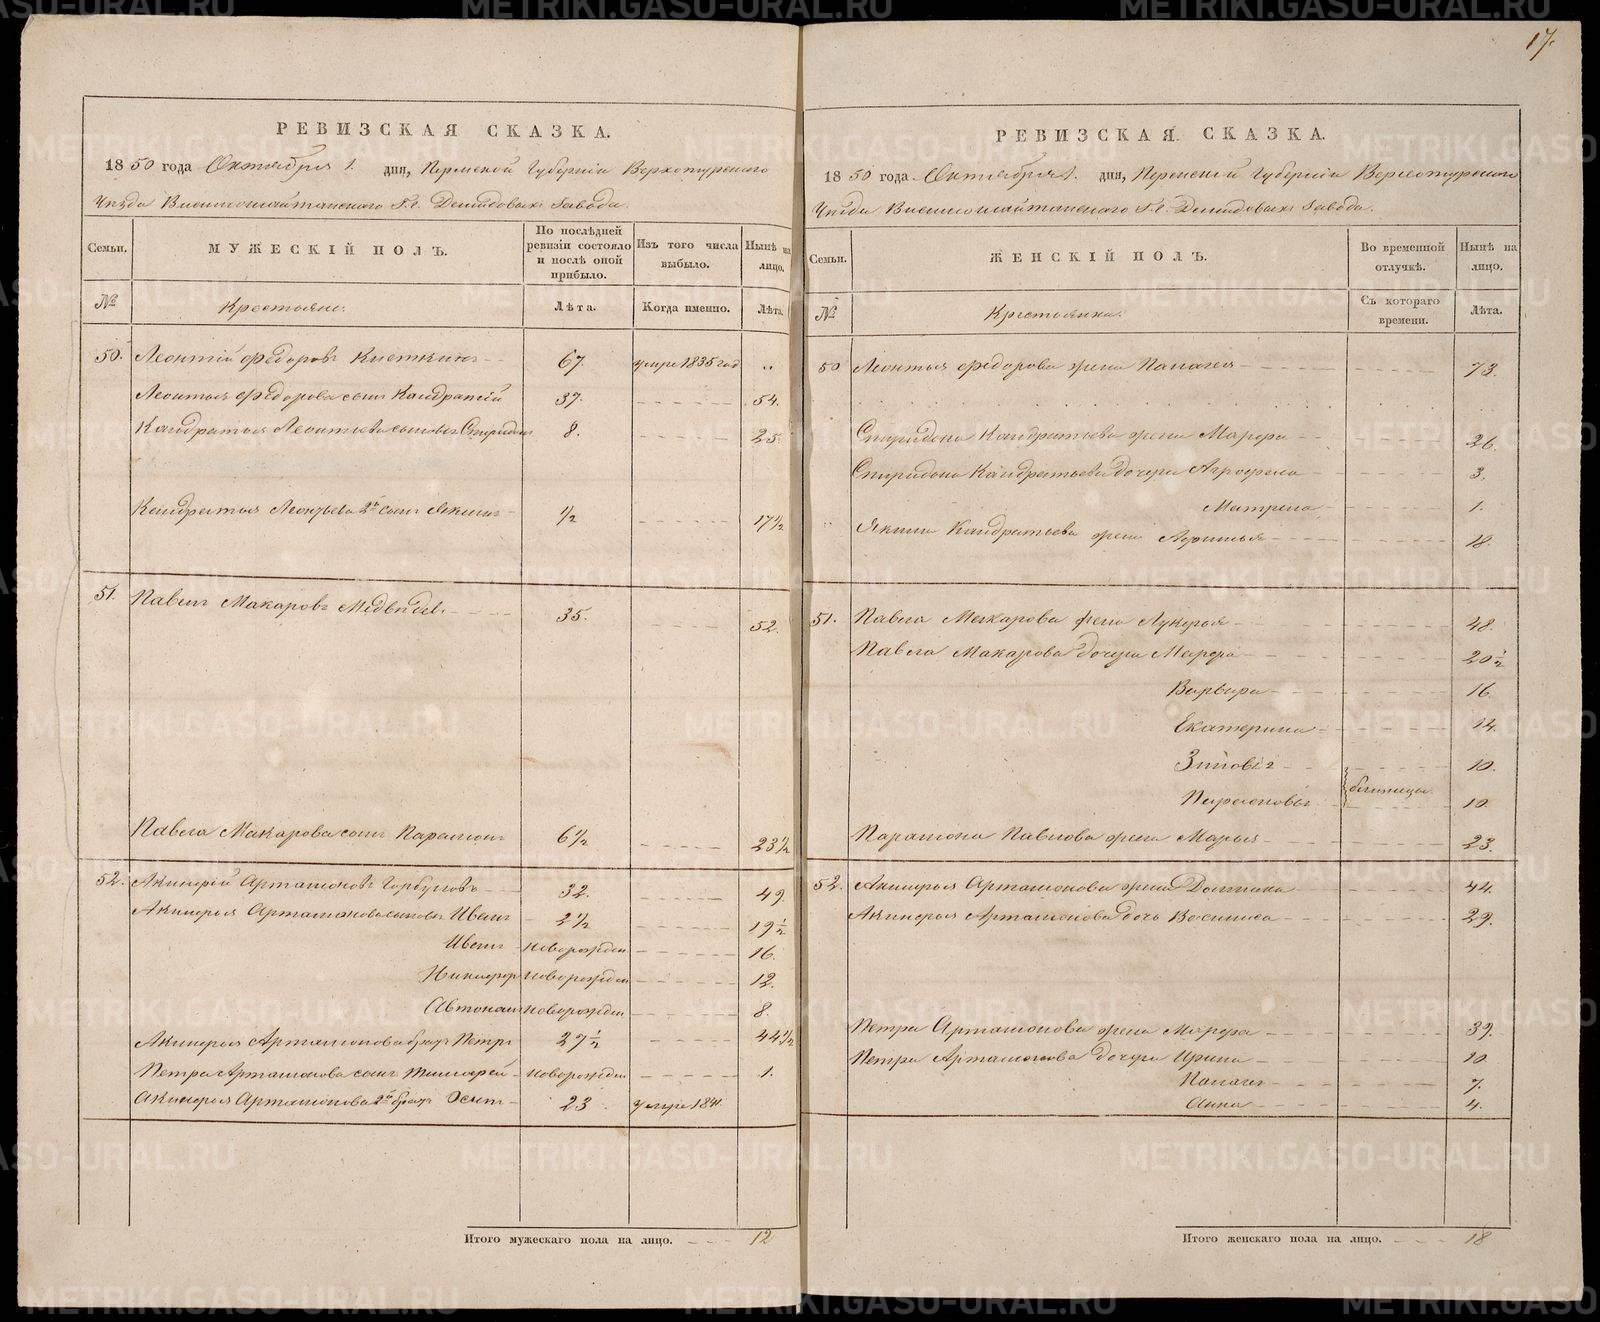 17.
РЕВИЗСКАЯ СКАЗКА.
1850 года Октября 1. дня, Пермской Губерніи Верхотурскаго
Уѣзда Висимошайтанскаго Г.г. Демидовыхъ Завода.
Семьи.
МУЖЕСКІЙ ПОЛЪ.
По послѣдней ревизіи состояло и послѣ оной прибыло.
Изъ того числа выбыло.
Нынѣ на лицо.
№
Крестьяне.
Лѣта.
Когда именно.
Лѣта.
50. Леонтій Федоровъ 67. умре 1835 год
Леонтья Федорова сынъ Кандратій 37. 54.
Кандратья Леонтьева сыновья Спиридонъ 8. 25.
Кандратья Леонтьева 2й сынъ Якимъ 1/2 17 1/2
51. Павелъ Макаровъ Медвѣдевъ 35. 52.
Павла Макарова сынъ Парамонъ 6 1/2 23 1/2
52. Акинфій Артамоновъ Горбуновъ 32. 49.
Акинфья Артамонова сыновья Иванъ 2 1/2 19 1/2
Иванъ новорожден 16.
Никифоръ новорожден 12.
Автономъ новорожден 8.
Акинфья Артамонова братъ Петръ 27 1/2 44 1/2
Петра Артамонова сынъ Тимофей новорожден 1.
Акинфья Артамонова 2й братъ Осипъ 23 умре 1841.
Итого мужескаго пола на лицо. 12
РЕВИЗСКАЯ СКАЗКА.
1850 года Октября 1. дня, Пермской Губерніи Верхотурскаго
Уѣзда Висимошайтанскаго Г.г. Демидовыхъ Завода.
Семьи.
ЖЕНСКІЙ ПОЛЪ.
Во временной отлучкѣ.
Нынѣ на лицо.
№
Крестьянки.
Съ котораго времени.
Лѣта.
50 Леонтья Федорова жена Палагея 73.
Спиридона Кандратьева жена Марфа 26
Спиридона Кандратьева дочери Агрофена 3.
Матрена 1.
Якима Кандратьева жена Афимья 18.
51. Павла Макарова жена Лукерья 48.
Павла Макарова дочери Марфа 20 1/2
Варвара 16
Екатерина 14.
Зиновія 10.
близнецы
10
Парамона Павлова жена Марья 23.
52. Акинфья Артамонова жена Домника 44.
Акинфья Артамонова дочь Василиса 29.
Петра Артамонова жена Марфа 39.
Петра Артамонова дочери Ирина 10
Палагея 7.
Анна 4.
Итого женскаго пола на лицо. 18
METRIKI.GASO-URAL.RU